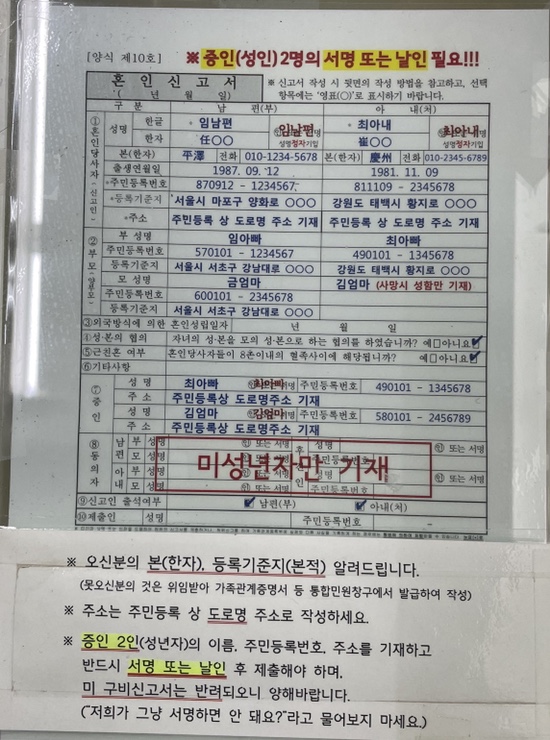 [양식 제10호]
※ 증인(성인) 2명의 서명 또는 날인 필요!!!
혼 인 신 고 서
( 년 월 일)
※ 신고서 작성 시 뒷면의 작성 방법을 참고하고, 선택
항목에는 '영표(○)'로 표시하기 바랍니다.
구 분 남 편(부) 아 내(처)
①혼인당사자(신고인)
성명 한글 *임남편 임남편 *최아내 최아내
한자 任○○ 성명정자기입 崔○○ 성명정자기입
본(한자) 平澤 전화 010-1234-5678 본(한자) 慶州 전화 010-2345-6789
출생연월일 1987. 09. 12 1981. 11. 09
*주민등록번호 870912 - 1234567. 811109 - 2345678
*등록기준지 서울시 마포구 양화로 ○○○ 강원도 태백시 황지로 ○○○
*주소 주민등록 상 도로명 주소 기재 주민등록 상 도로명 주소 기재
②부모(양부모)
부 성명 임아빠 최아빠
주민등록번호 570101 - 1234567 490101 - 1345678
등록기준지 서울시 서초구 강남대로 ○○○ 강원도 태백시 황지로 ○○○
모 성명 금엄마 김엄마 (사망시 성함만 기재)
주민등록번호 600101 - 2345678
등록기준지 서울시 서초구 강남대로 ○○○
③외국방식에 의한 혼인성립일자 년 월 일
④성·본의 협의 자녀의 성·본을 모의 성·본으로 하는 협의를 하였습니까? 예□아니요☑
⑤근친혼 여부 혼인당사자들이 8촌이내의 혈족사이에 해당됩니까? 예□아니요☑
⑥기타사항
⑦증인
성 명 최아빠 최아빠 주민등록번호 490101 - 1345678
주 소 주민등록상 도로명주소 기재
성 명 김엄마 김엄마 주민등록번호 580101 - 2456789
주 소 주민등록상 도로명주소 기재
⑧동의자
남편 부 성명 ㊞ 또는 서명 후견인 성명 ㊞ 또는 서명
모 성명 주민등록번호
아내 부 성명 ㊞ 또는 서명 성명 ㊞ 또는 서명
모 성명 ㊞ 또는 서명 주민등록번호
미성년자만 기재
⑨신고인 출석여부 ☑ 남편(부) ☑ 아내(처)
⑩제출인 성명 주민등록번호
※ 오신분의 본(한자), 등록기준지(본적) 알려드립니다.
(못오신분의 것은 위임받아 가족관계증명서 등 통합민원창구에서 발급하여 작성)
※ 주소는 주민등록 상 도로명 주소로 작성하세요.
※ 증인 2인(성년자)의 이름, 주민등록번호, 주소를 기재하고
반드시 서명 또는 날인 후 제출해야 하며,
미 구비신고서는 반려되오니 양해바랍니다.
("저희가 그냥 서명하면 안 돼요?"라고 물어보지 마세요.)